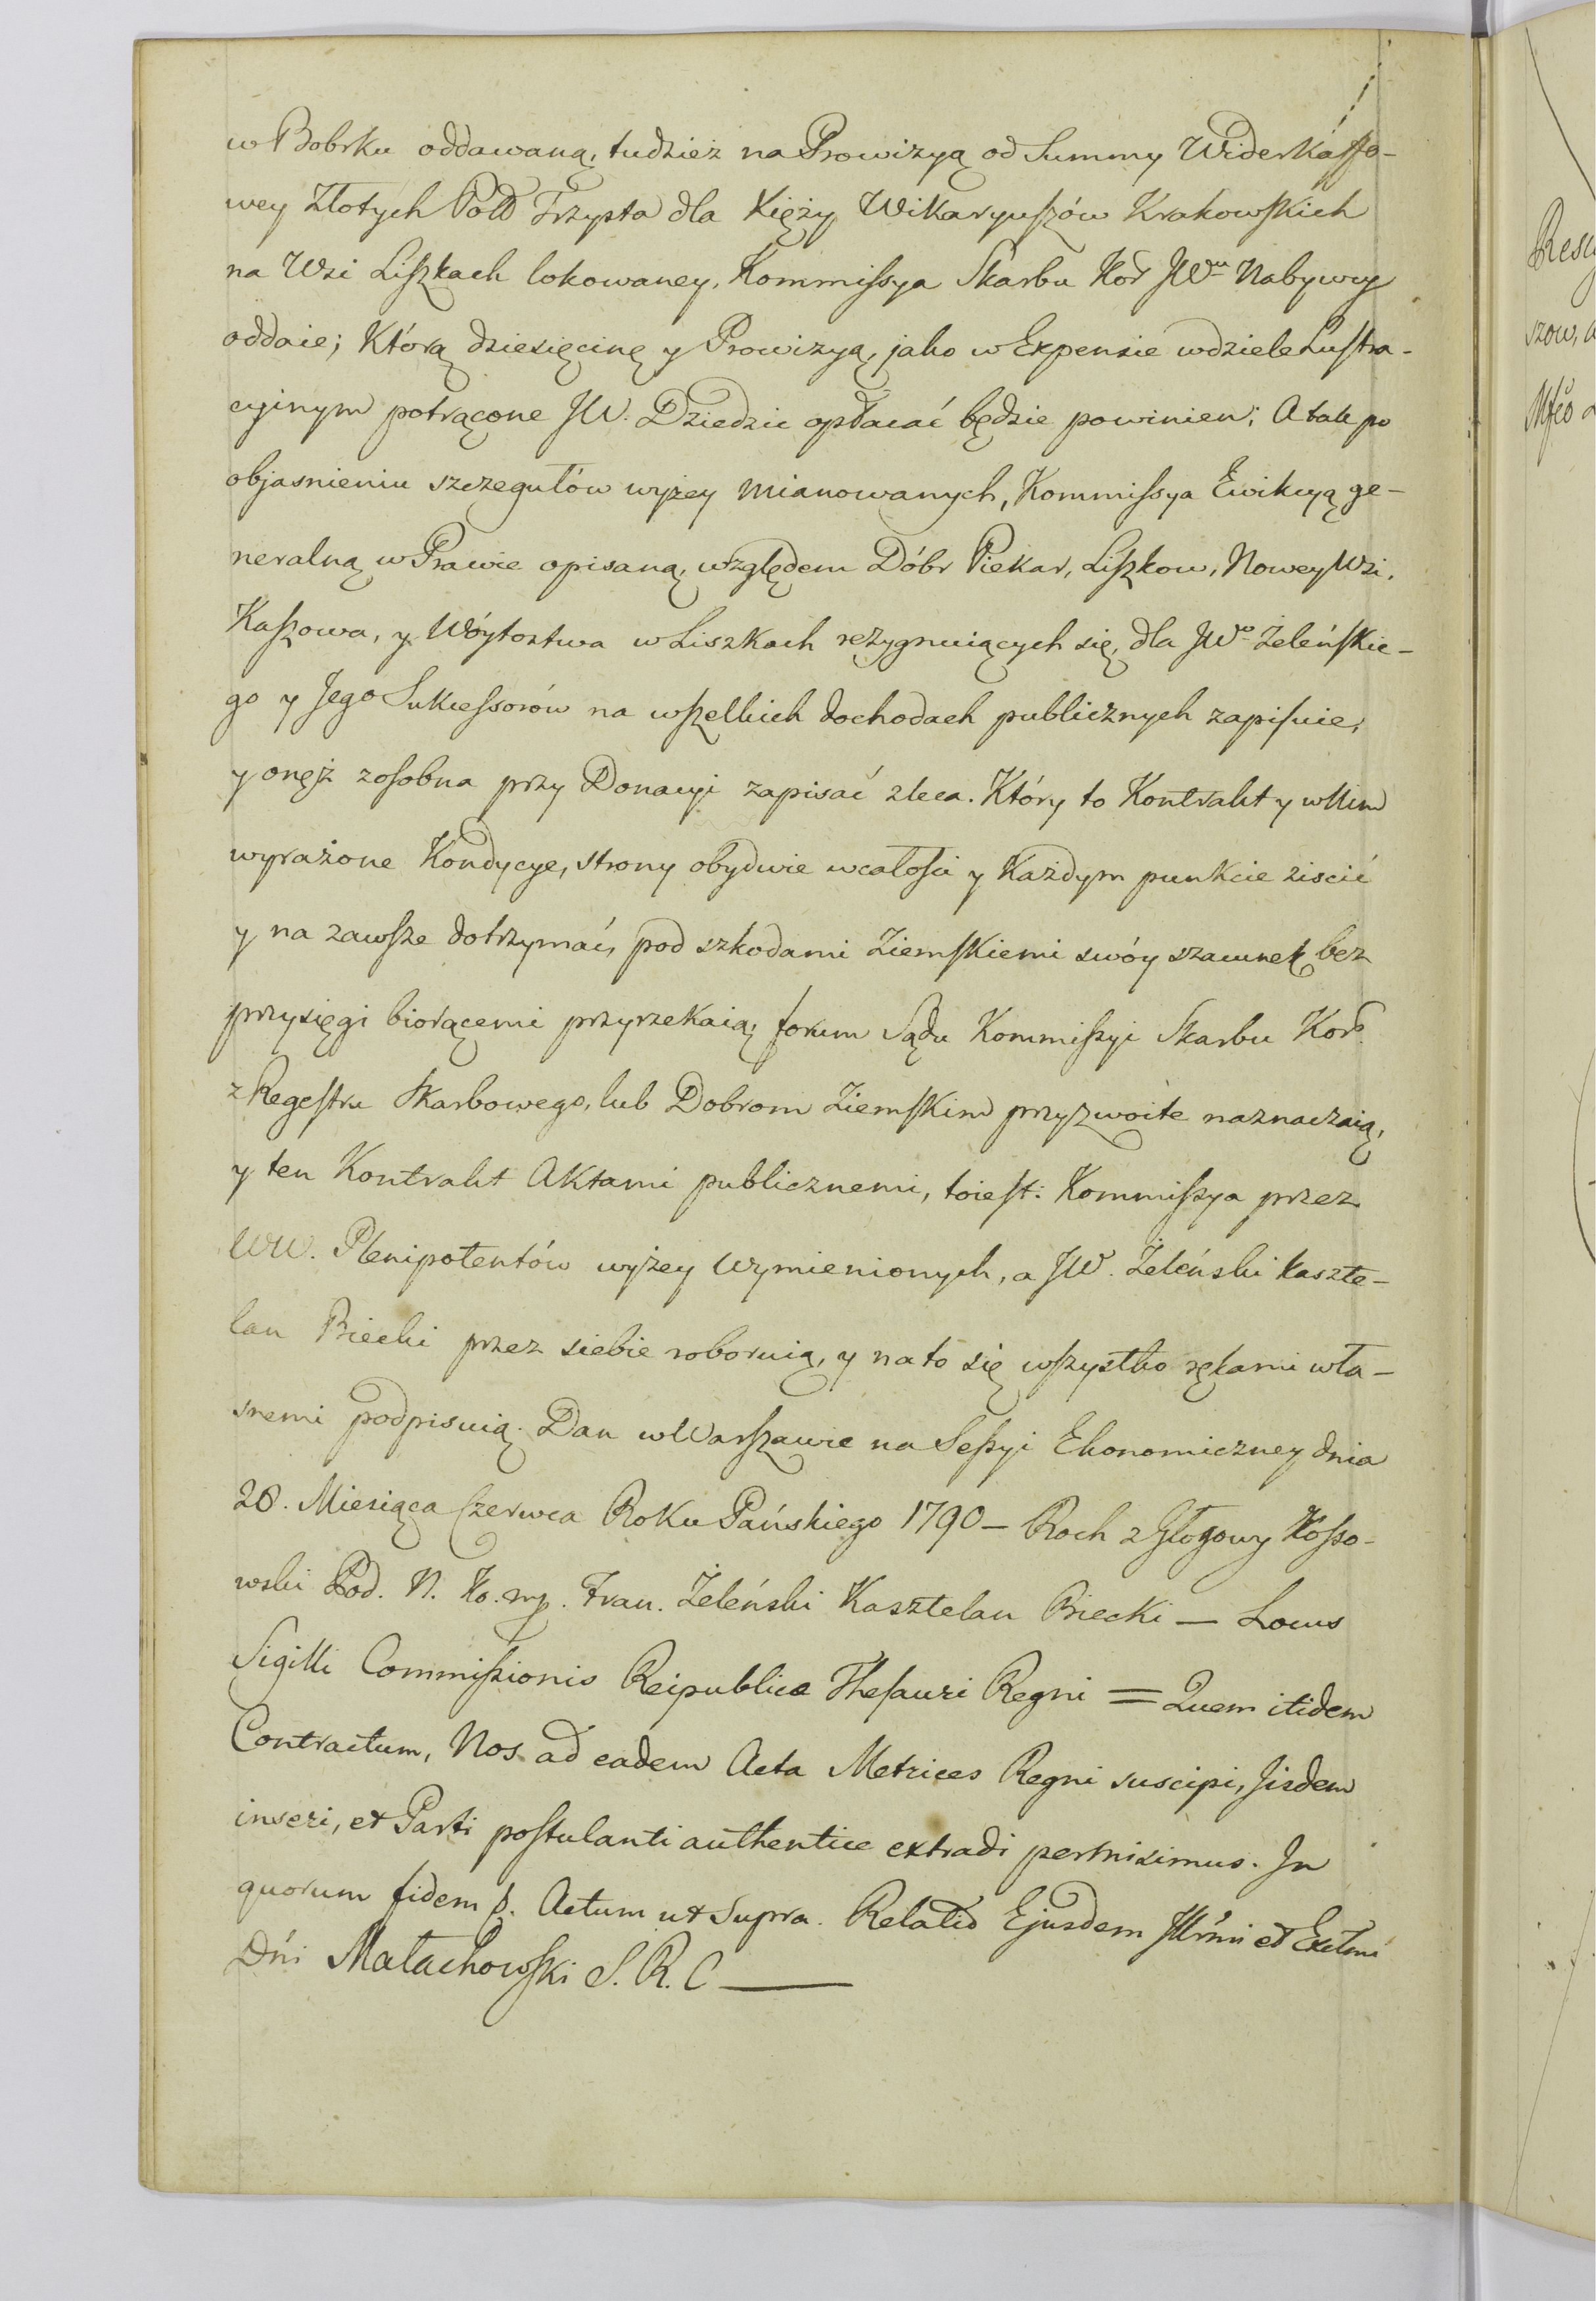 w Bobrku oddawaną, tudzież na Prowizyą od Summy Widerkaffo-
wey Złotych Pol Trzysta dla Xięży Wikaryuszów Krakowskich
na Wsi Liszkach lokowaney, Kommissya Skarbu Kor JWu Nabywcy
oddaie; Którą dziesięcinę y Prowizyą, jako w Expensie w dziele Lustra-
cyinym potrącone JW. Dziedzic opłacać będzie powinien; A tak po
objasnieniu szczegułów wyżey mianowanych, Kommissya Ewikcyą ge-
neralną w Prawie opisaną, względem Dóbr Piekar, Liszkow, Nowey Wsi,
Kaszowa, y Wóytostwa w Liszkach rezygnuiących się, dla JWo Żeleńskie-
go y Jego Sukcessorów na wszelkich dochodach publicznych zapisuie,
y onęż zosobna przy Donacyi zapisać zleca. Który to Kontrakt y w Nim
wyrażone Kondycye, strony obydwie w całości y Każdym punkcie ziscić
y na zawsze dotrzymać, pod szkodami Ziemskiemi swóy szacunek bez
przysięgi biorącemi przyrzekaią, forum Sądu Kommissyi Skarbu Kor
z Regestru Skarbowego, lub Dobrom Ziemskim przyzwoite naznaczaią,
y ten Kontrakt Aktami publicznemi, toiest: Kommissya przez
WW. Plenipotentów wyżey wymienionych, a JW. Żeleński Kaszte-
lan Biecki przez siebie roboruią, y na to się wszystko rękami wła-
snemi podpisuią. Dan w Warszawie na Sessyi Ekonomiczney dnia
28. Miesiąca Czerwca Roku Pańskiego 1790 – Roch z Głogowy Kosso-
wski Pod. N. Ko. mp. Fran. Żeleński Kasztelan Biecki — Locus
Sigilli Commissionis Reipublicæ Thesauri Regni = Quem itidem
Contractum, Nos ad eadem Acta Metrices Regni suscipi, Jisdem
inseri, et Parti postulanti authentice extradi permisimus. In
quorum fidem p. Actum ut Supra. Relatio Ejusdem Jllrmi et Exclmi
Dńi Małachowski S. R. C —
Resy
szow, a